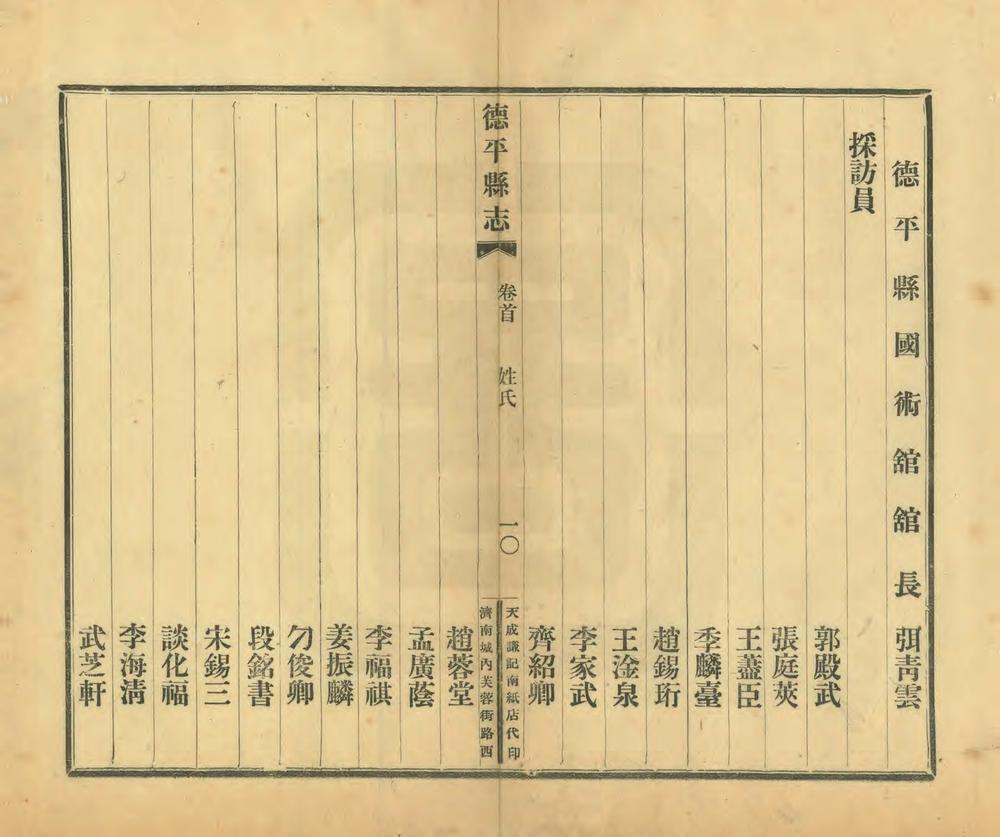 德平縣國術舘舘長 弭靑雲
採訪員
郭殿武
張庭莢
王藎臣
季麟臺
趙錫珩
王淦泉
李家武
齊紹卿
德平縣志 卷首 姓氏 一〇
天成謙記南紙店代印
濟南城內芙蓉街路西
趙蓉堂
孟廣蔭
李福祺
姜振麟
刁俊卿
段銘書
宋錫三
談化福
李海淸
武芝軒